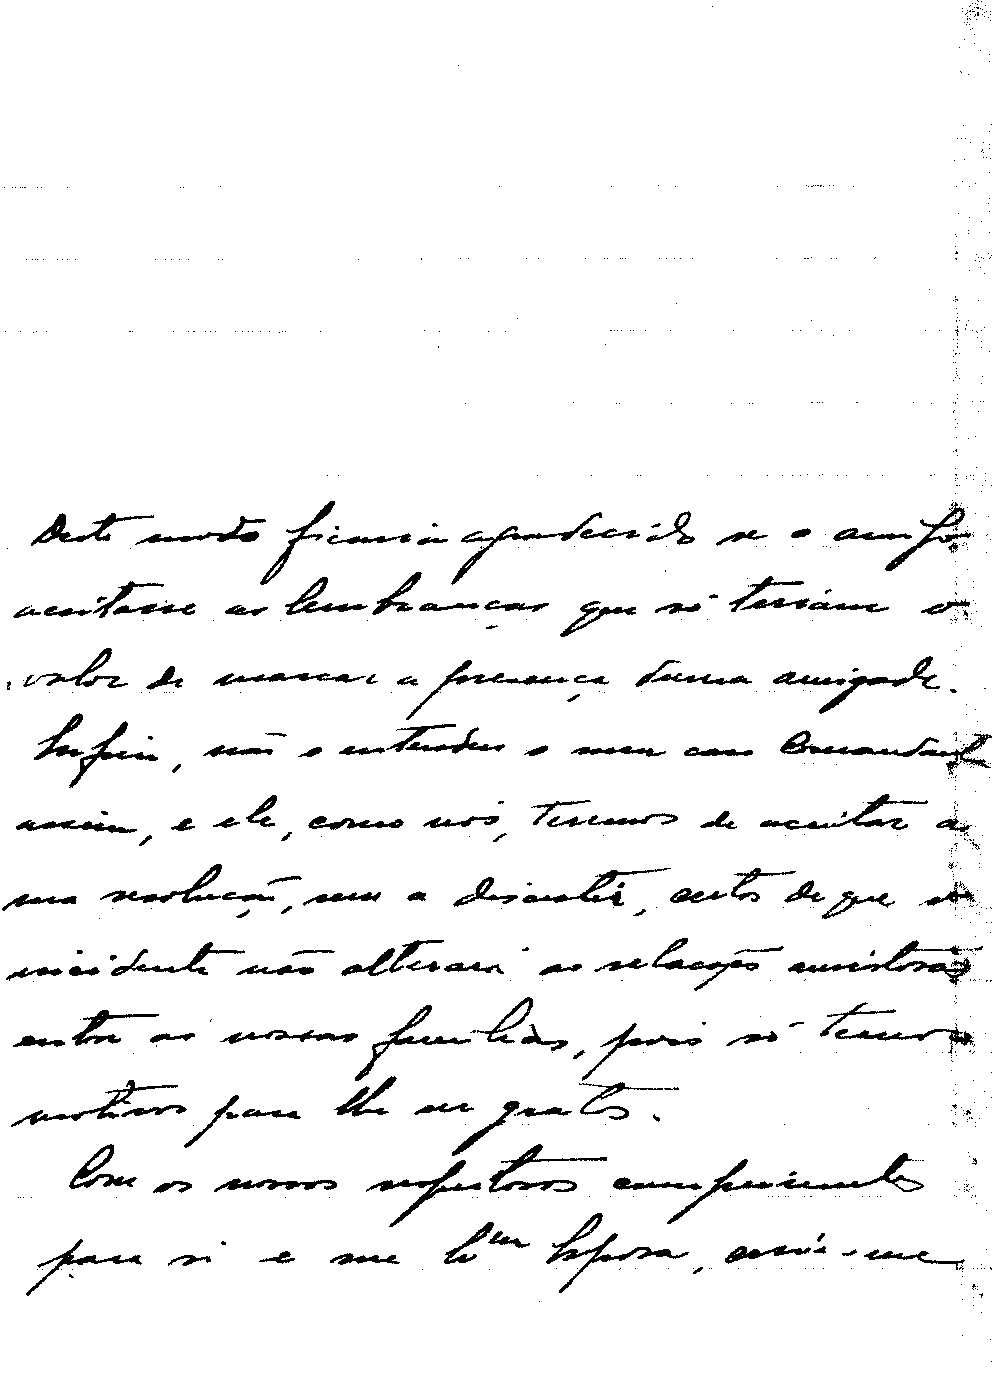 Deste modo ficaria agradecido se o amigo
aceitasse as lembranças que só teriam o
valor de marcar a presença duma amizade.
Enfim, não o entendeu o meu caro Comandante
assim, e ele, como nós, teremos de aceitar a
sua resolução, sem a discutir, certos de que o
incidente não alterará as relações amistosas
entre as nossas famílias, pois só temos
motivos para lhe ser gratos.
Com os nossos respeitosos cumprimentos
para si e sua Exma Esposa, creia-me